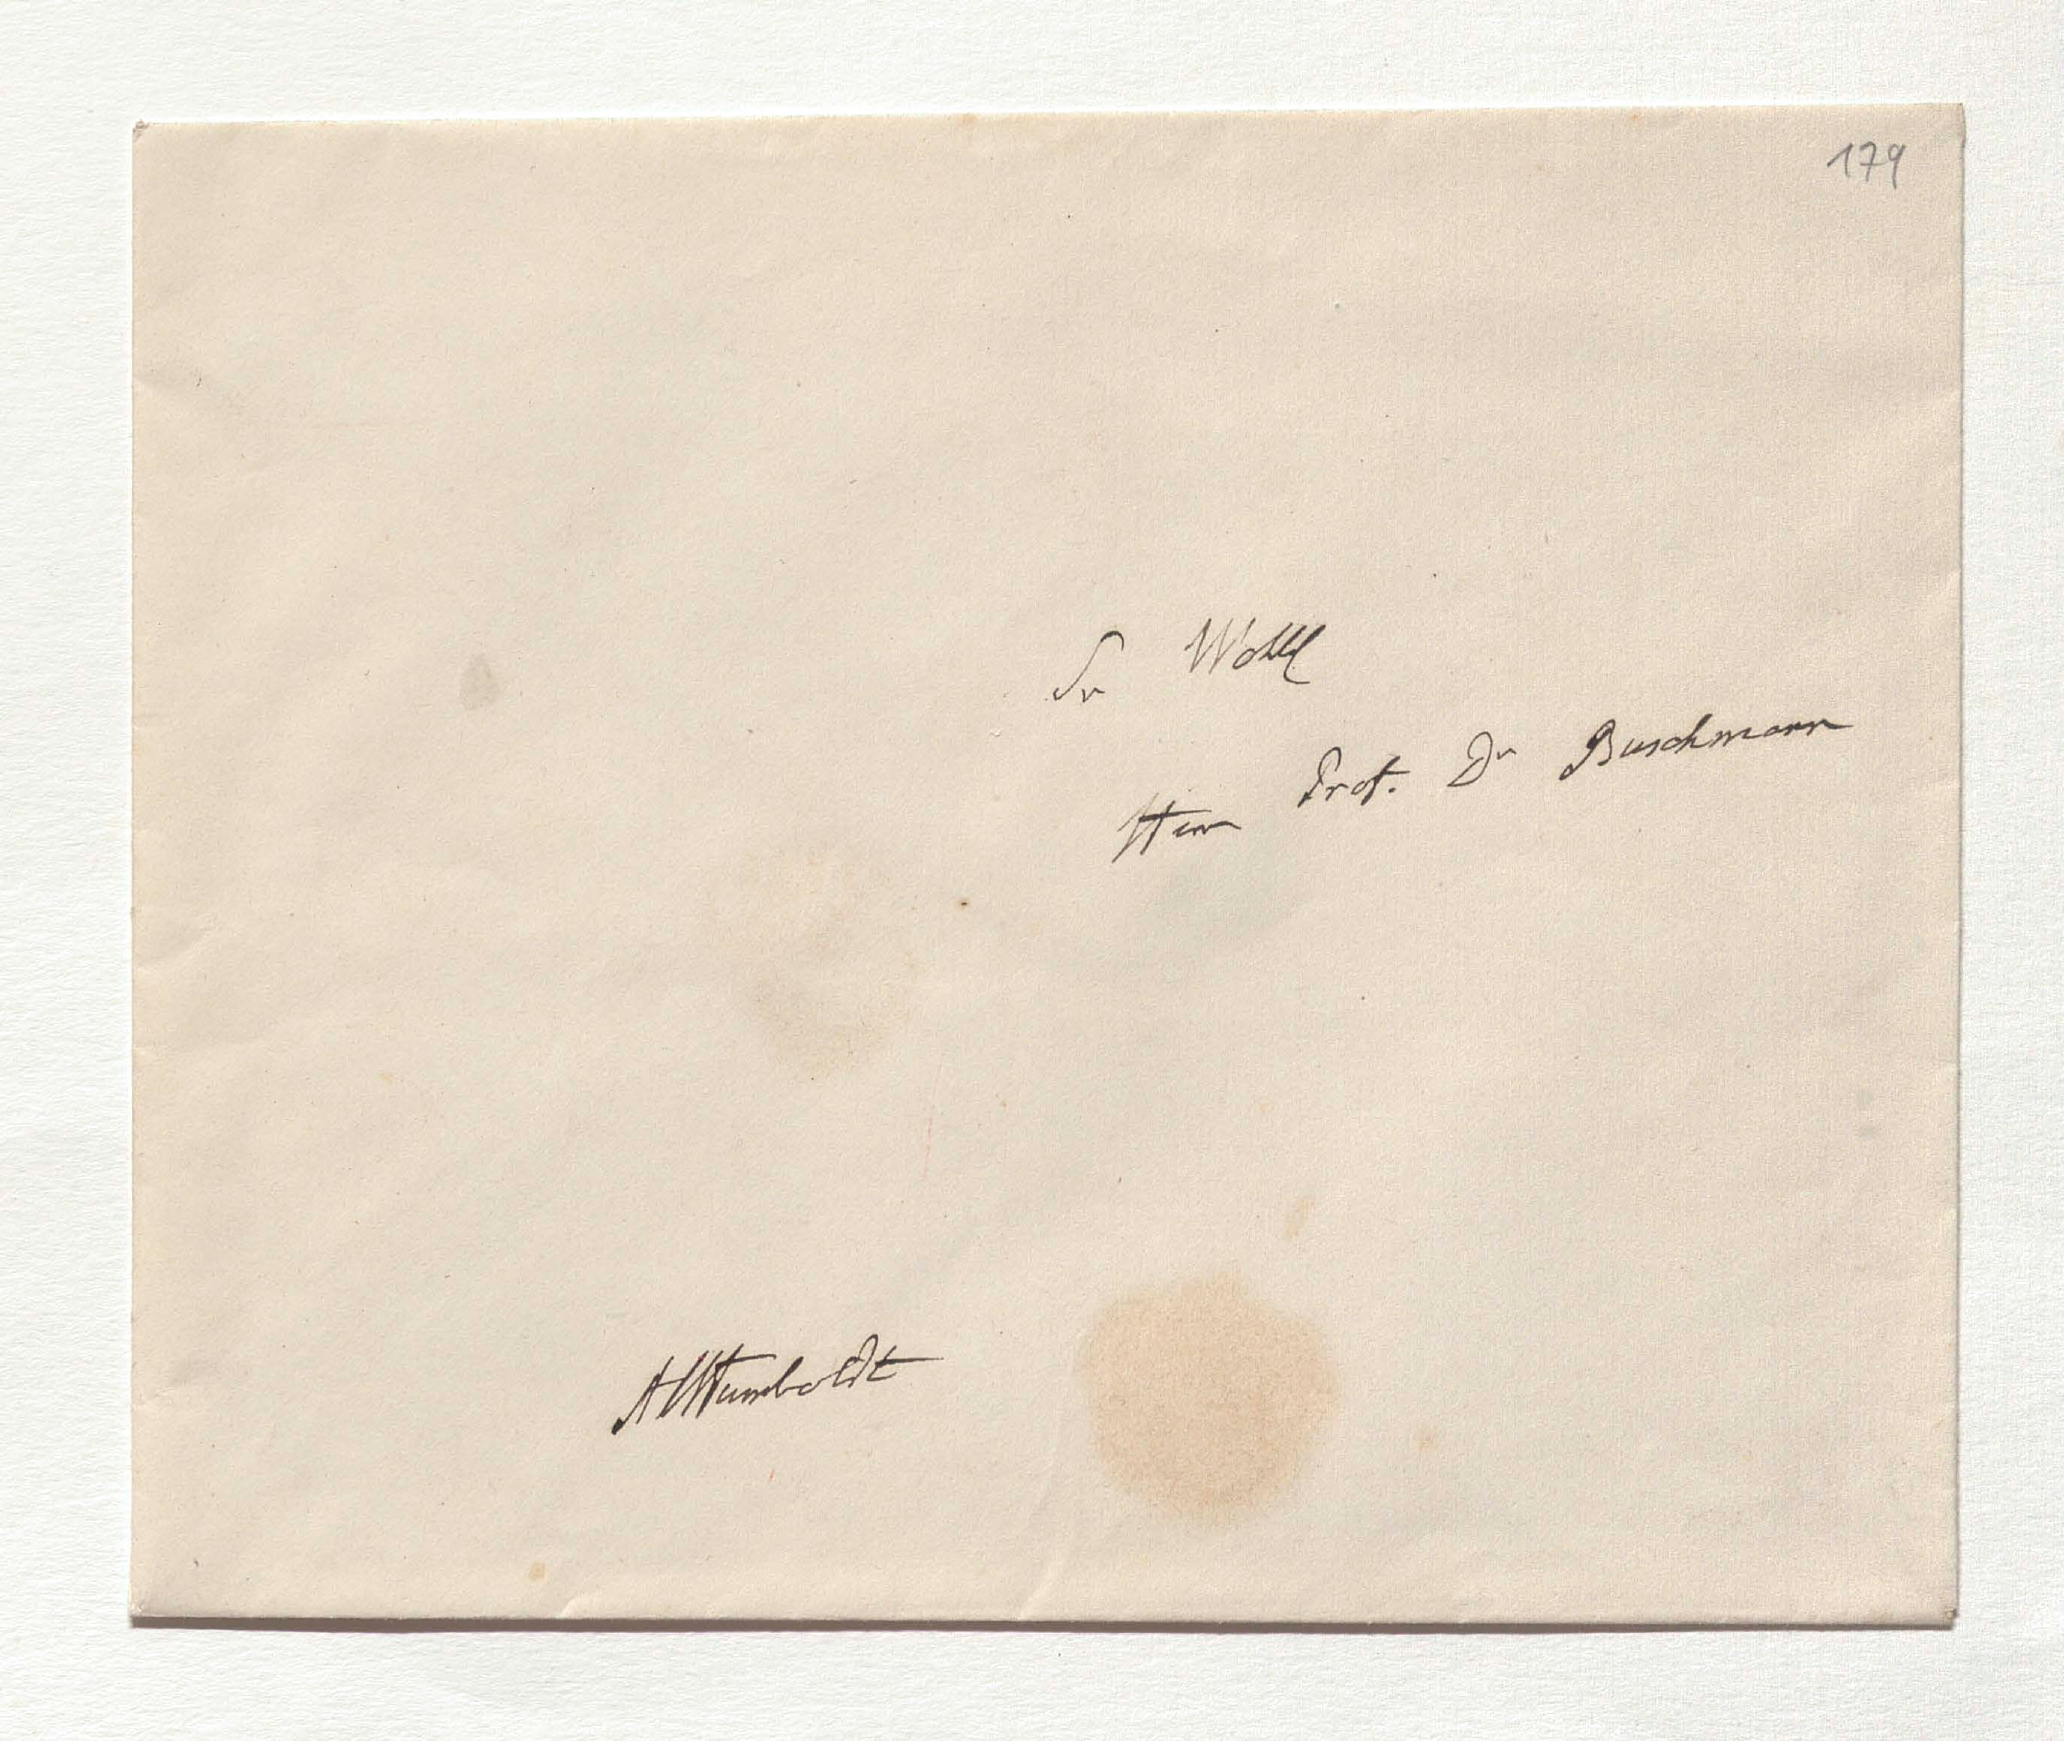 179
Sr Wohll
Herrn Prof. Dr Buschmann
AvHumboldt